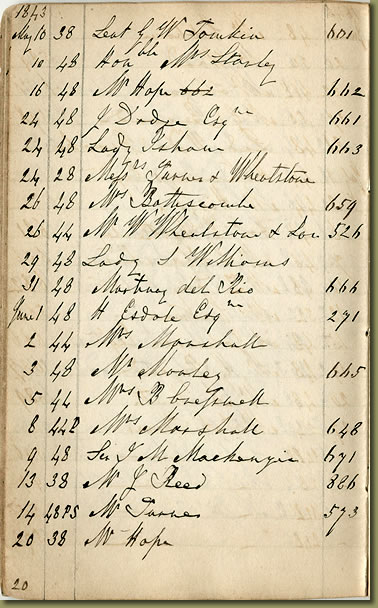 1843
May 10 38 Leut G W Tomkin 601
10 48 Honble Mrs Stanley
16 48 Mr Hope 662 662
24 48 J Dodge Esqre 661
24 48 Lady Isham 663
24 28 Messrs Turner & Wheatstone
26 48 Mrs Bathscombe 659
26 44 Mr W Wheatstone & Son 526
29 48 Lady S Williams
31 48 Martinez del Rio 666
June 1 48 H Esdale Esqre 271
2 44 Mrs Marshall
3 48 Mr Morley 665
5 44 Mrs B Cresswell
8 44P Mrs Marshall 648
9 48 Sir J M Mackenzie 671
13 38 Mr J Reed
14 48PS Mr Turner 573
20 38 Mr Hope
20